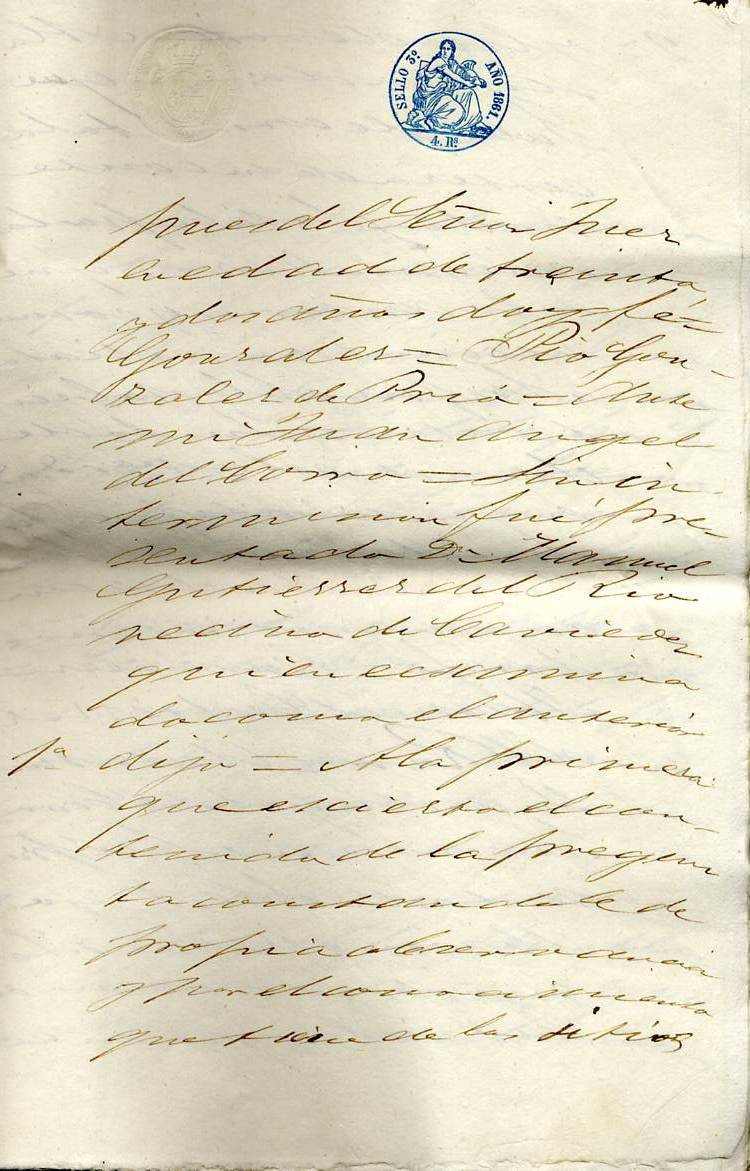 SELLO 3º AÑO 1861.
4. Rs
pues del Señor Juez
en edad de treinta
y dos años doy fé=
Gonzalez= Pio Gon-
zalez de Prió= Ante
mi Juan Angel
del Corro= Sin in
termision fué pre-
sentado Dn Manuel
Gutierrez del Rio
vecino de Caviedes
quien ecsamina
do como el anterior
1ª dijo= A la primera
que es cierto el con-
tenido de la pregun
ta constandole de
propia observancia
y por el conocimiento
que tiene de los sitios